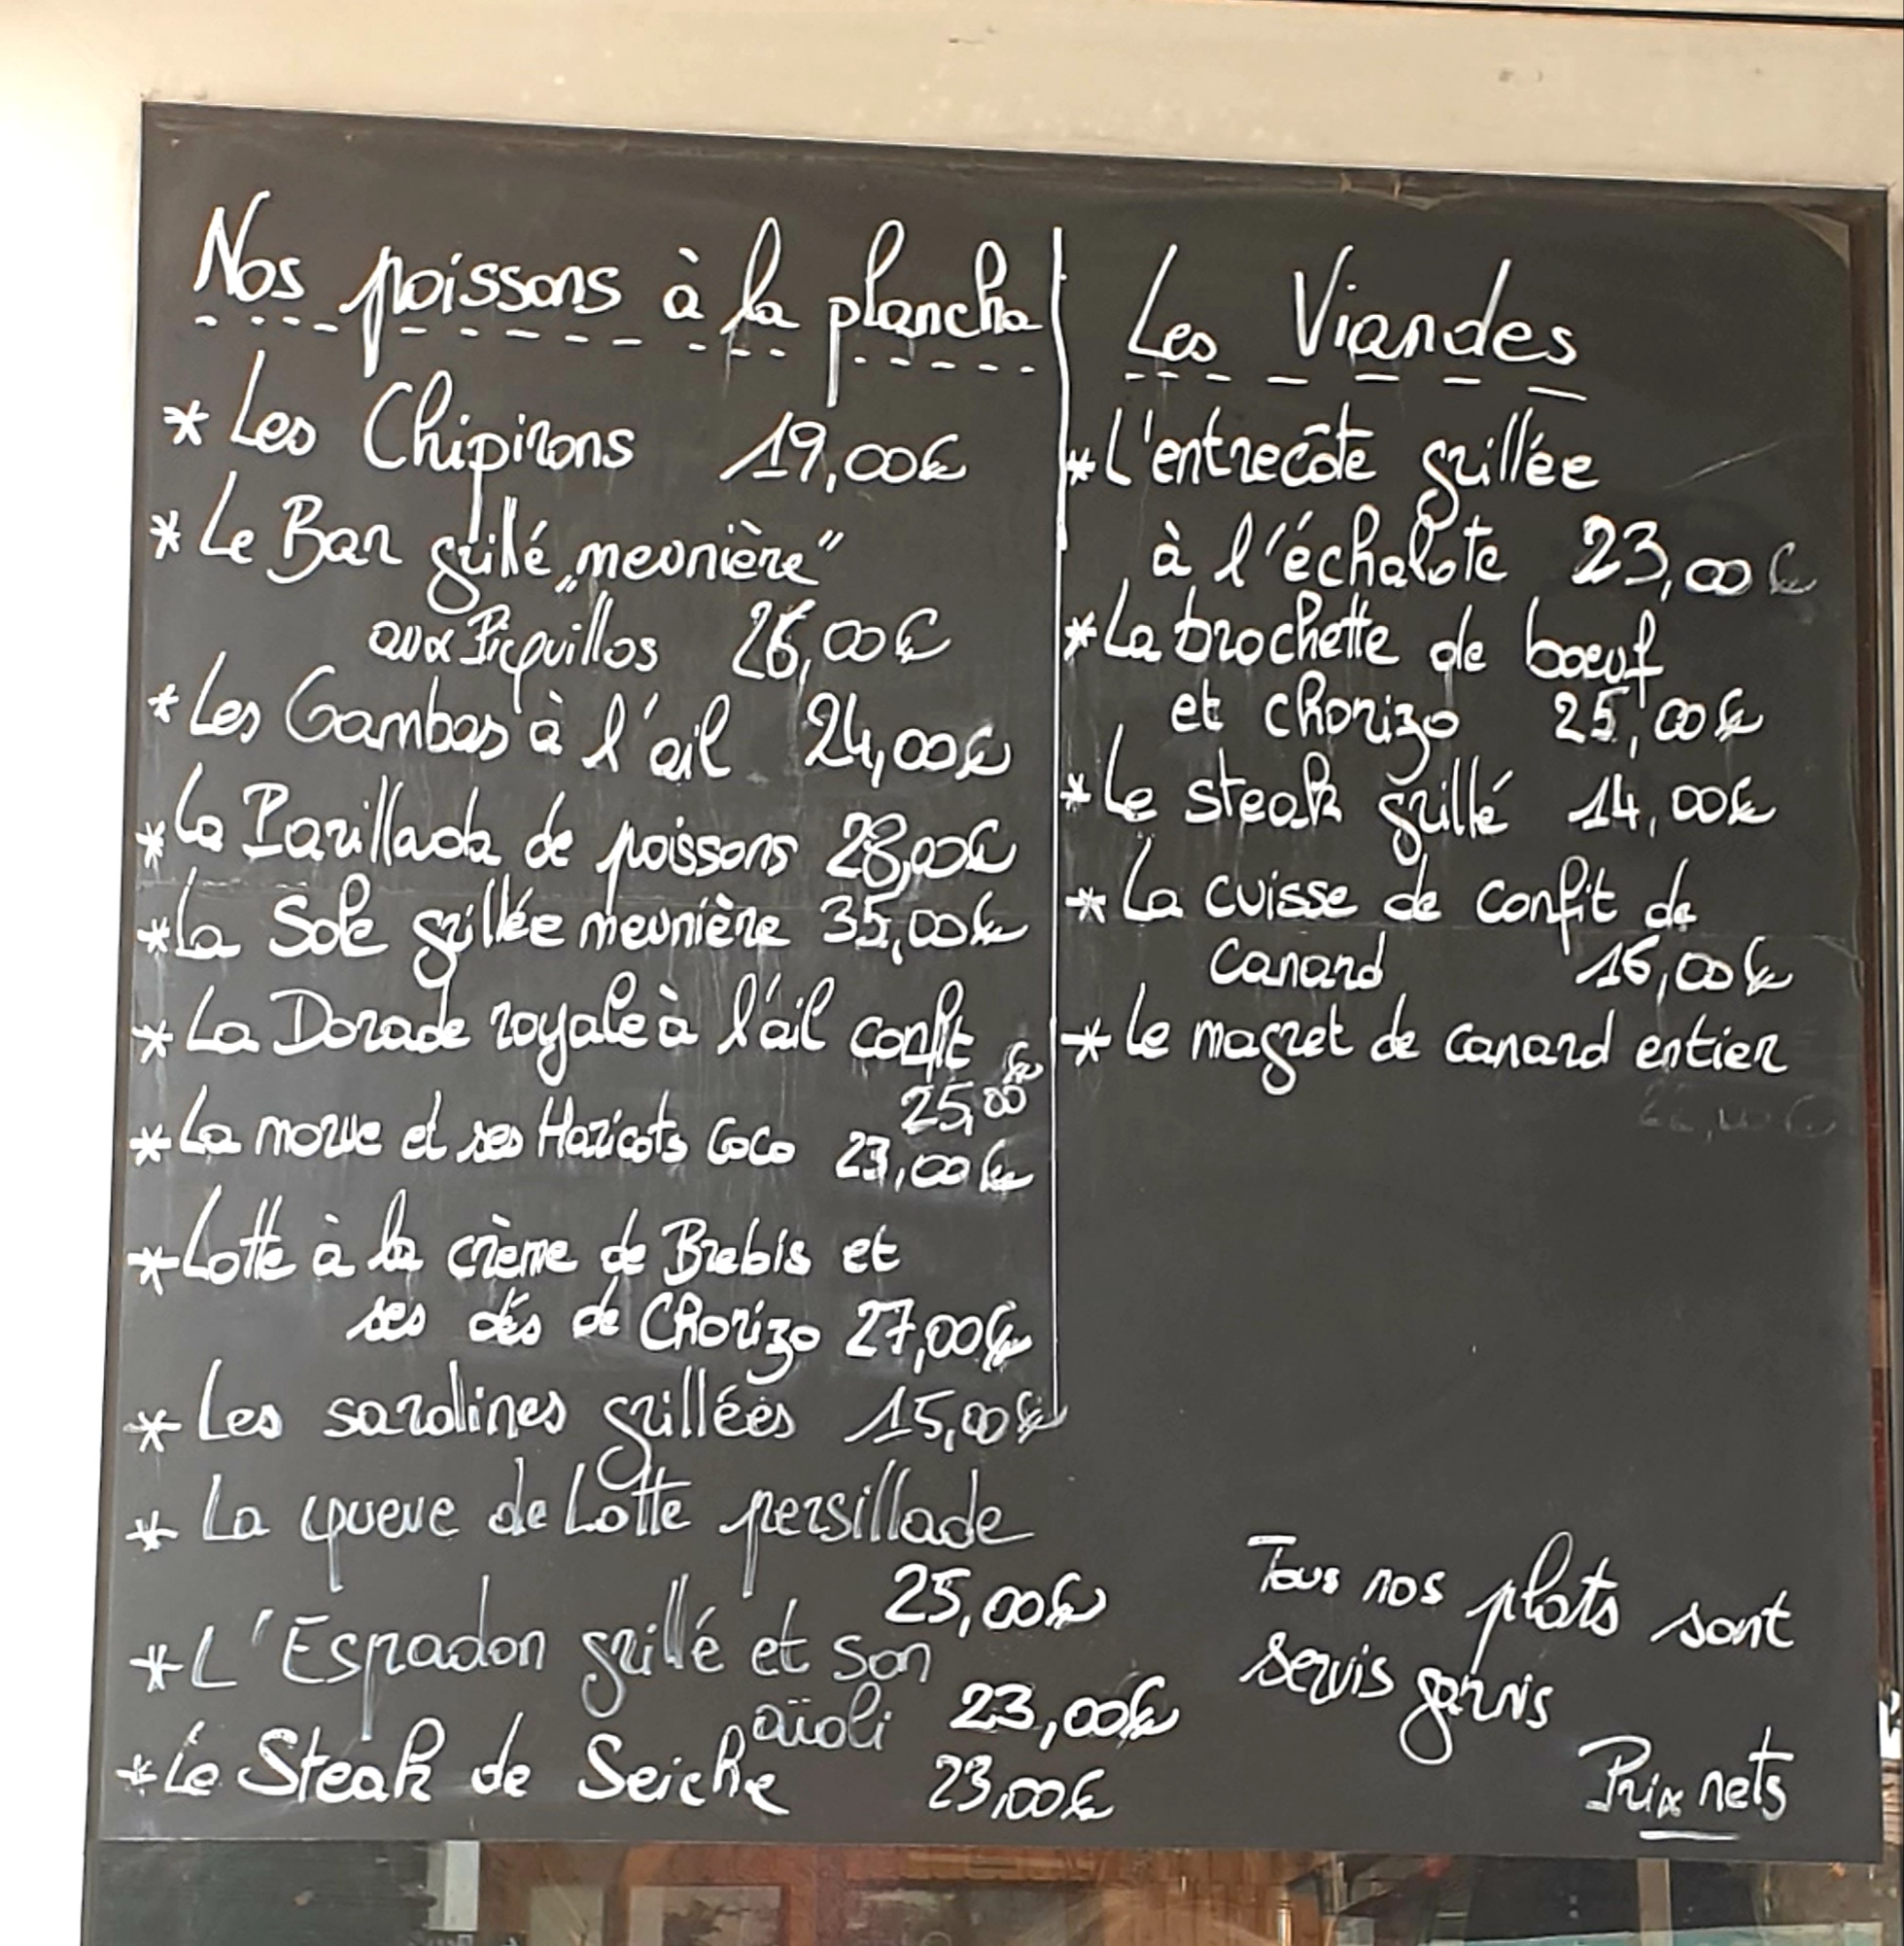 Nos poissons à la plancha
* Les Chipirons 19,00€
* Le Bar grillé „meunière”
aux Picquillos 26,00€
* Les Gambas à l'ail 24,00€
* La Parillada de poissons 28,00€
* La Sole grillée meunière 35,00€
* La Dorade royale à l'ail confit
25,00 €
* La morue et ses Haricots Coco 23,00€
* Lotte à la crème de Brebis et
ses dés de Chorizo 27,00€
* Les sardines grillées 15,00€
* La queue de Lotte persillade
25,00€
* L'Espadon grillé et son
aïoli 23,00€
* Le Steak de Seiche 23,00€
Les Viandes
* L'entrecôte grillée
à l'échalote 23,00€
* La brochette de boeuf
et chorizo 25,00€
* Le steak grillé 14,00€
* La cuisse de confit de
canard 16,00€
* Le magret de canard entier
Tous nos plats sont
servis garnis
Prix nets